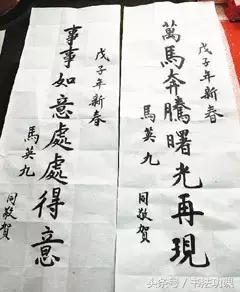 戊子年新春
萬馬奔騰曙光再現
馬英九
同敬賀
戊子年新春
事事如意處處得意
馬英九
同敬賀
头条号 / 书法功课